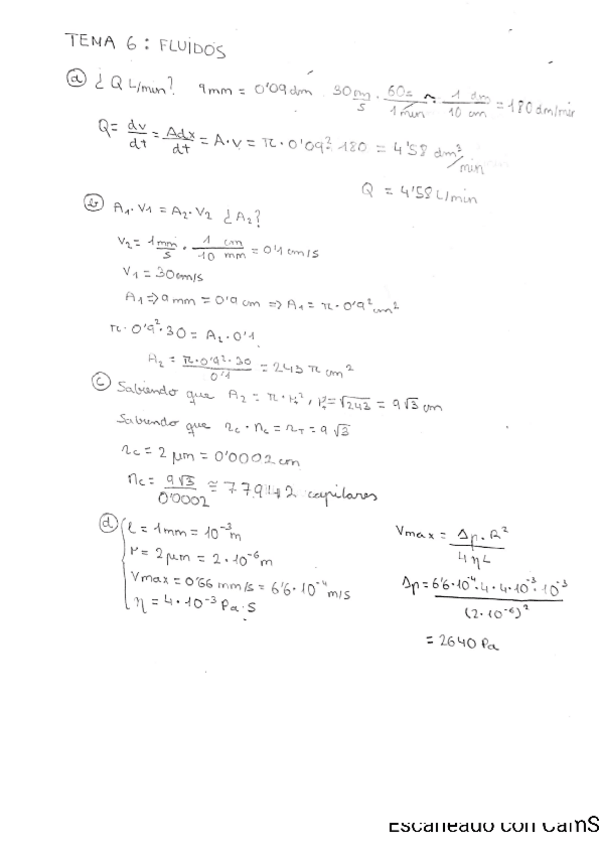 TEMA 6: FLUIDOS
a ¿Q L/min? 9mm = 0'09dm 30 cm/s · 60s/1min · 1 dm/10 cm = 180 dm/min
Q = dv/dt = Adx/dt = A·v = π·0'09²·180 = 4'58 dm³/min
Q = 4'58 L/min
b A₁·V₁ = A₂·V₂ ¿A₂?
V₂ = 1mm/s · 1 cm/10 mm = 0'1 cm/s
V₁ = 30cm/s
A₁ => 9mm = 0'9 cm => A₁ = π·0'9² cm²
π·0'9²·30 = A₂·0'1
A₂ = π·0'9²·30/0'1 = 243 π cm²
c Sabiendo que A₂ = π·r², r = √243 = 9√3 cm
Sabiendo que rc·nc = rT = 9√3
rc = 2 μm = 0'0002 cm
nc = 9√3/0'0002 ≅ 77942 capilares
d l = 1mm = 10⁻³ m
r = 2μm = 2·10⁻⁶ m
Vmax = 0'66 mm/s = 6'6·10⁻⁴ m/s
η = 4·10⁻³ Pa·s
Vmax = Δp·R²/4ηL
Δp = 6'6·10⁻⁴·4·4·10⁻³·10⁻³/(2·10⁻⁶)²
= 2640 Pa
Escaneado con CamS